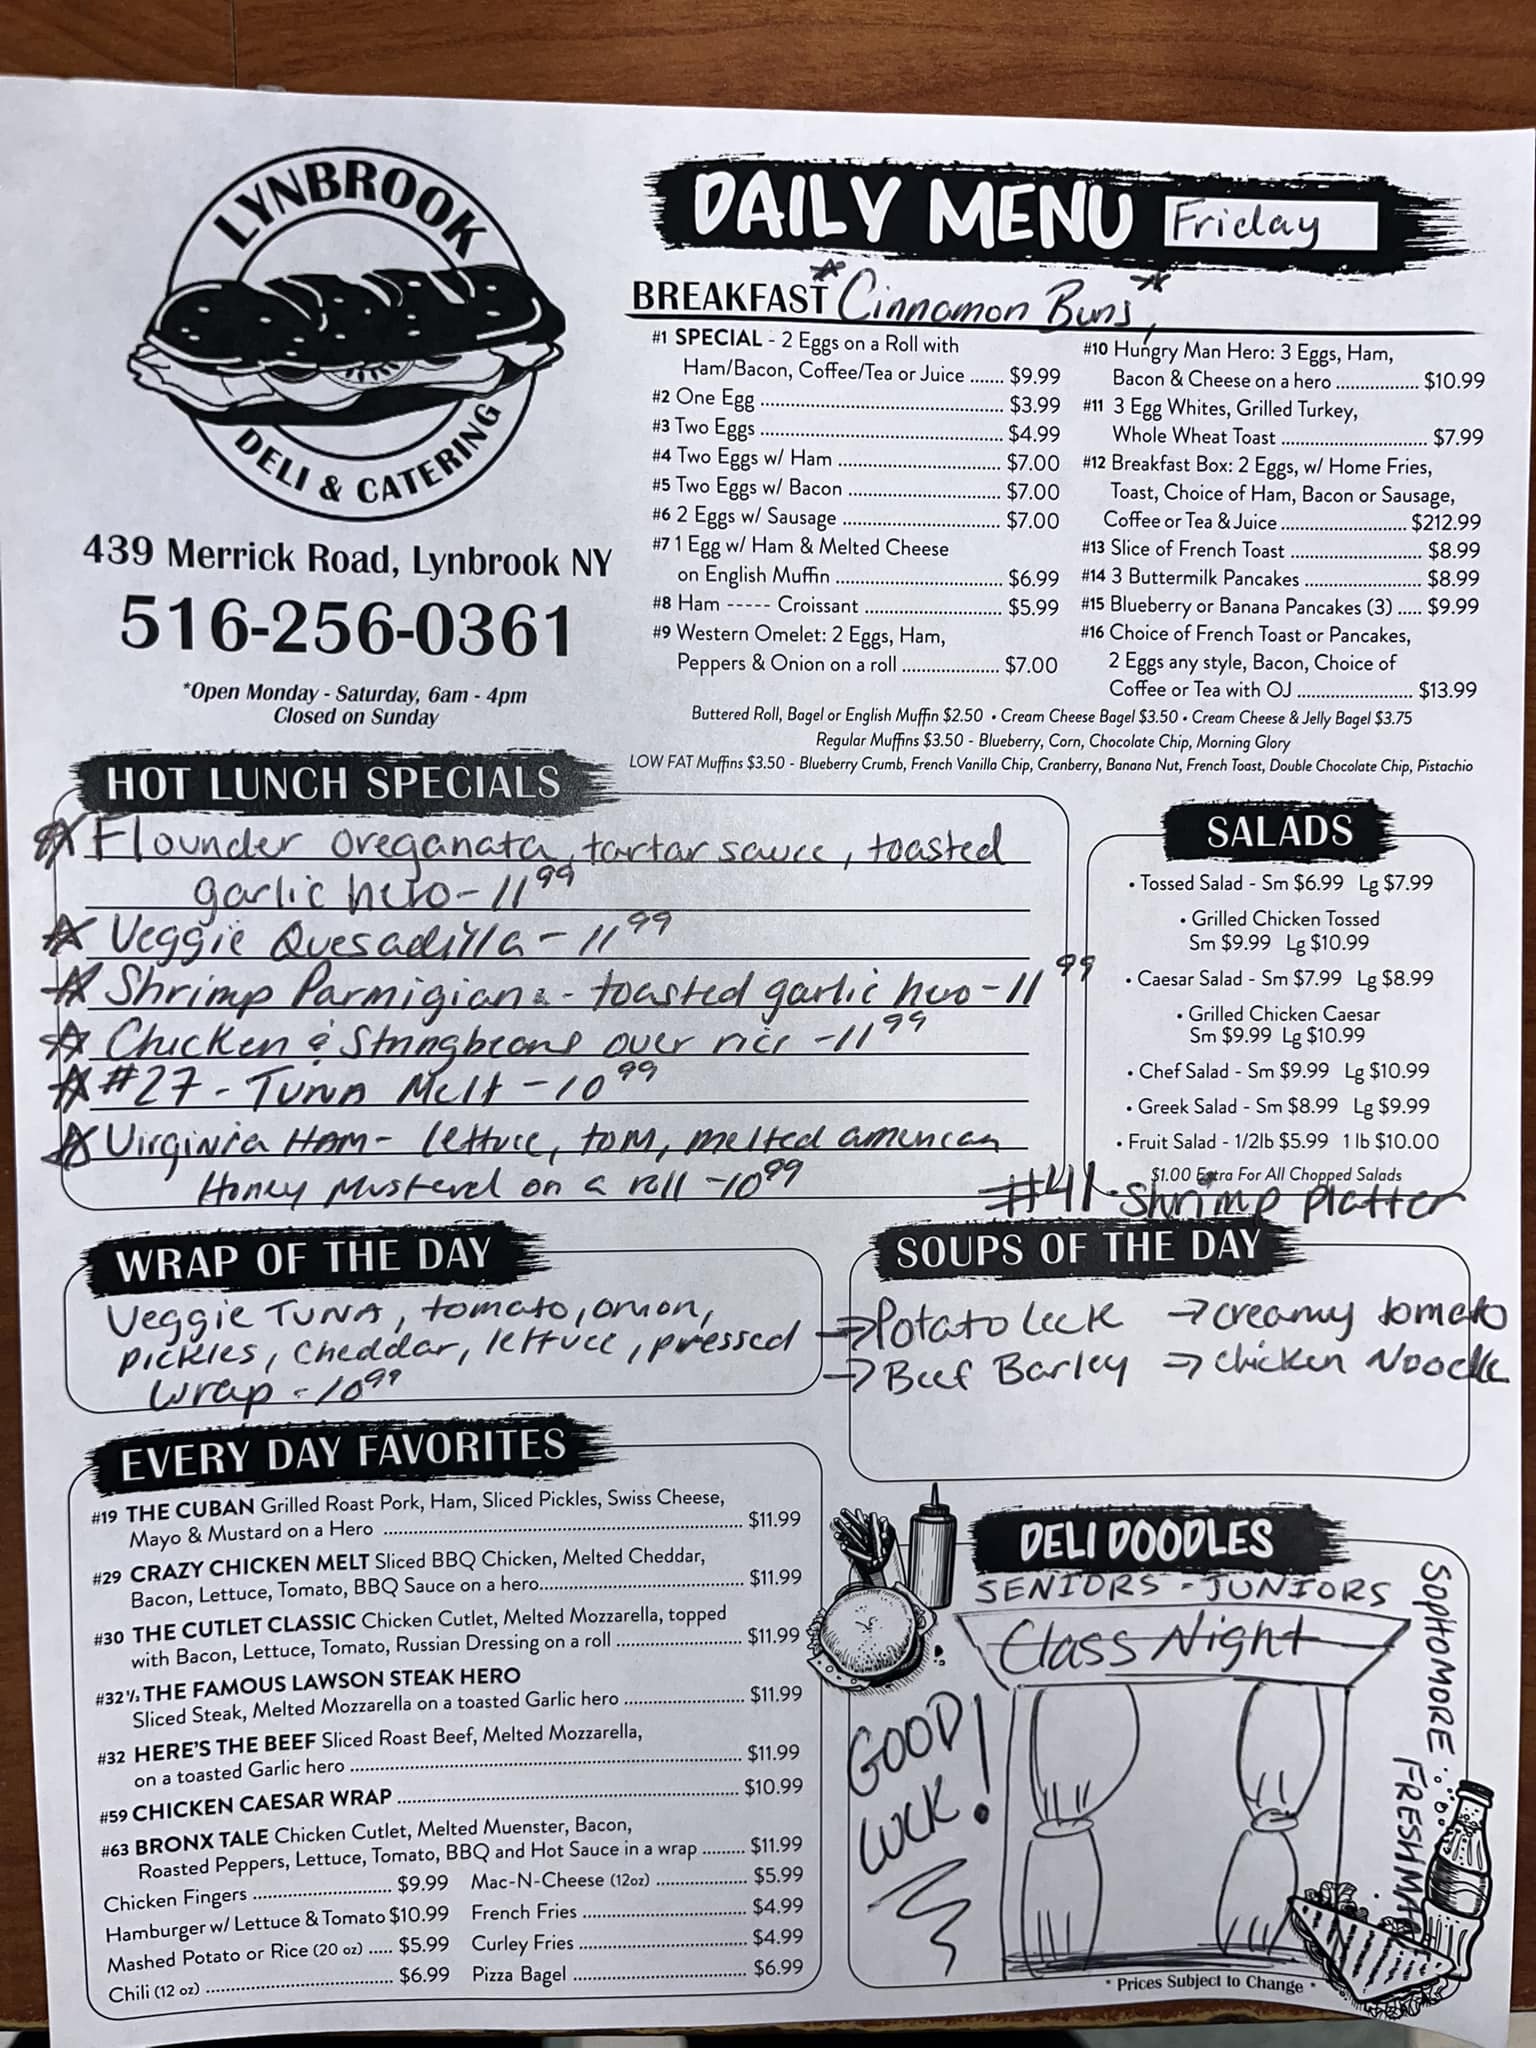 LYNBROOK
DELI & CATERING
439 Merrick Road, Lynbrook NY
516-256-0361
*Open Monday - Saturday, 6am - 4pm
Closed on Sunday
DAILY MENU Friday
BREAKFAST Cinnamon Buns
#1 SPECIAL - 2 Eggs on a Roll with
Ham/Bacon, Coffee/Tea or Juice ....... $9.99
#2 One Egg ............ $3.99
#3 Two Eggs ............ $4.99
#4 Two Eggs w/ Ham ............ $7.00
#5 Two Eggs w/ Bacon ............ $7.00
#6 2 Eggs w/ Sausage ............ $7.00
#7 1 Egg w/ Ham & Melted Cheese
on English Muffin ............ $6.99
#8 Ham ----- Croissant ............ $5.99
#9 Western Omelet: 2 Eggs, Ham,
Peppers & Onion on a roll ............ $7.00
#10 Hungry Man Hero: 3 Eggs, Ham,
Bacon & Cheese on a hero ............ $10.99
#11 3 Egg Whites, Grilled Turkey,
Whole Wheat Toast ............ $7.99
#12 Breakfast Box: 2 Eggs, w/ Home Fries,
Toast, Choice of Ham, Bacon or Sausage,
Coffee or Tea & Juice ............ $212.99
#13 Slice of French Toast ............ $8.99
#14 3 Buttermilk Pancakes ............ $8.99
#15 Blueberry or Banana Pancakes (3) ..... $9.99
#16 Choice of French Toast or Pancakes,
2 Eggs any style, Bacon, Choice of
Coffee or Tea with OJ ............ $13.99
Buttered Roll, Bagel or English Muffin $2.50 • Cream Cheese Bagel $3.50 • Cream Cheese & Jelly Bagel $3.75
Regular Muffins $3.50 - Blueberry, Corn, Chocolate Chip, Morning Glory
LOW FAT Muffins $3.50 - Blueberry Crumb, French Vanilla Chip, Cranberry, Banana Nut, French Toast, Double Chocolate Chip, Pistachio
HOT LUNCH SPECIALS
Flounder oreganata, tartar sauce, toasted
garlic hero - 11.99
Veggie Quesadilla - 11.99
Shrimp Parmigiana - toasted garlic hero - 11.99
Chicken & Stringbeans over rice - 11.99
#27 - Tuna Melt - 10.99
Virginia Ham - lettuce, tom, melted american
Honey Mustard on a roll - 10.99
SALADS
• Tossed Salad - Sm $6.99 Lg $7.99
• Grilled Chicken Tossed
Sm $9.99 Lg $10.99
• Caesar Salad - Sm $7.99 Lg $8.99
• Grilled Chicken Caesar
Sm $9.99 Lg $10.99
• Chef Salad - Sm $9.99 Lg $10.99
• Greek Salad - Sm $8.99 Lg $9.99
• Fruit Salad - 1/2lb $5.99 1 lb $10.00
$1.00 Extra For All Chopped Salads
#41 - Shrimp Platter
WRAP OF THE DAY
Veggie TUNA, tomato, onion,
pickles, cheddar, lettuce, pressed
wrap - 10.99
SOUPS OF THE DAY
→Potato Leek →creamy tomato
→Beef Barley →chicken Noodle
EVERY DAY FAVORITES
#19 THE CUBAN Grilled Roast Pork, Ham, Sliced Pickles, Swiss Cheese,
Mayo & Mustard on a Hero ............ $11.99
#29 CRAZY CHICKEN MELT Sliced BBQ Chicken, Melted Cheddar,
Bacon, Lettuce, Tomato, BBQ Sauce on a hero............ $11.99
#30 THE CUTLET CLASSIC Chicken Cutlet, Melted Mozzarella, topped
with Bacon, Lettuce, Tomato, Russian Dressing on a roll ............ $11.99
#32½ THE FAMOUS LAWSON STEAK HERO
Sliced Steak, Melted Mozzarella on a toasted Garlic hero ............ $11.99
#32 HERE'S THE BEEF Sliced Roast Beef, Melted Mozzarella,
on a toasted Garlic hero ............ $11.99
#59 CHICKEN CAESAR WRAP ............ $10.99
#63 BRONX TALE Chicken Cutlet, Melted Muenster, Bacon,
Roasted Peppers, Lettuce, Tomato, BBQ and Hot Sauce in a wrap ......... $11.99
Chicken Fingers ............ $9.99 Mac-N-Cheese (12oz) ............ $5.99
Hamburger w/ Lettuce & Tomato $10.99 French Fries ............ $4.99
Mashed Potato or Rice (20 oz) ..... $5.99 Curley Fries ............ $4.99
Chili (12 oz) ............ $6.99 Pizza Bagel ............ $6.99
DELI DOODLES
SENIORS - JUNIORS
Class Night
SOPHOMORE
FRESHMAN
GOOD
LUCK!
* Prices Subject to Change *